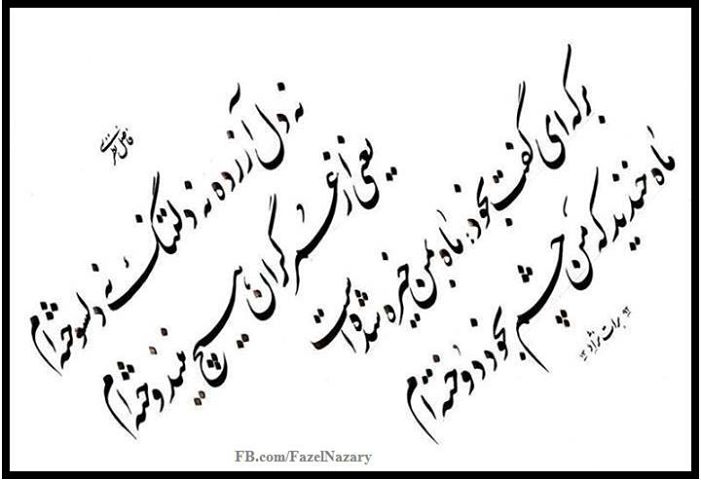 فاضل نظری
نه دل آزرده نه دلتنگ نه دلسوخته ام
یعنی از عمر گران هیچ نیندوخته ام
برکه ای گفت بخود: ماه بمن خیره شده است
ماه خندید که من چشم بخود دوخته ام
برات نژاد
FB.com/FazelNazary